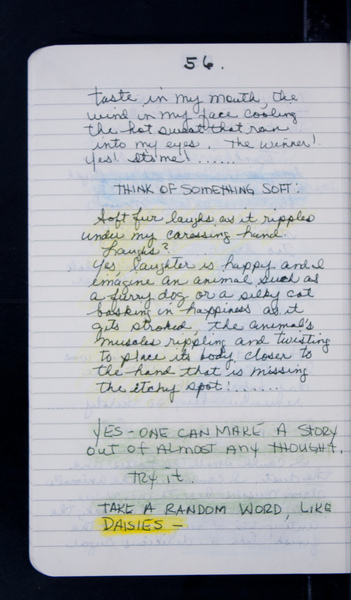 56.
taste in my mouth, the
wind in my face cooling
the hot sweat that ran
into my eyes. The winner!
Yes! It's me! ......
THINK OF SOMETHING SOFT:
Soft fur laughs as it ripples
under my caressing hand.
Laughs?
Yes, laughter is happy and I
imagine an animal such as
a furry dog or a silky cat
basking in happiness as it
gets stroked, the animal's
muscles rippling and twisting
to place its body closer to
the hand that is missing
the itchy spot! ......
YES - ONE CAN MAKE A STORY
OUT OF ALMOST ANY THOUGHT.
TRY it.
TAKE A RANDOM WORD, LIKE
DAISIES -